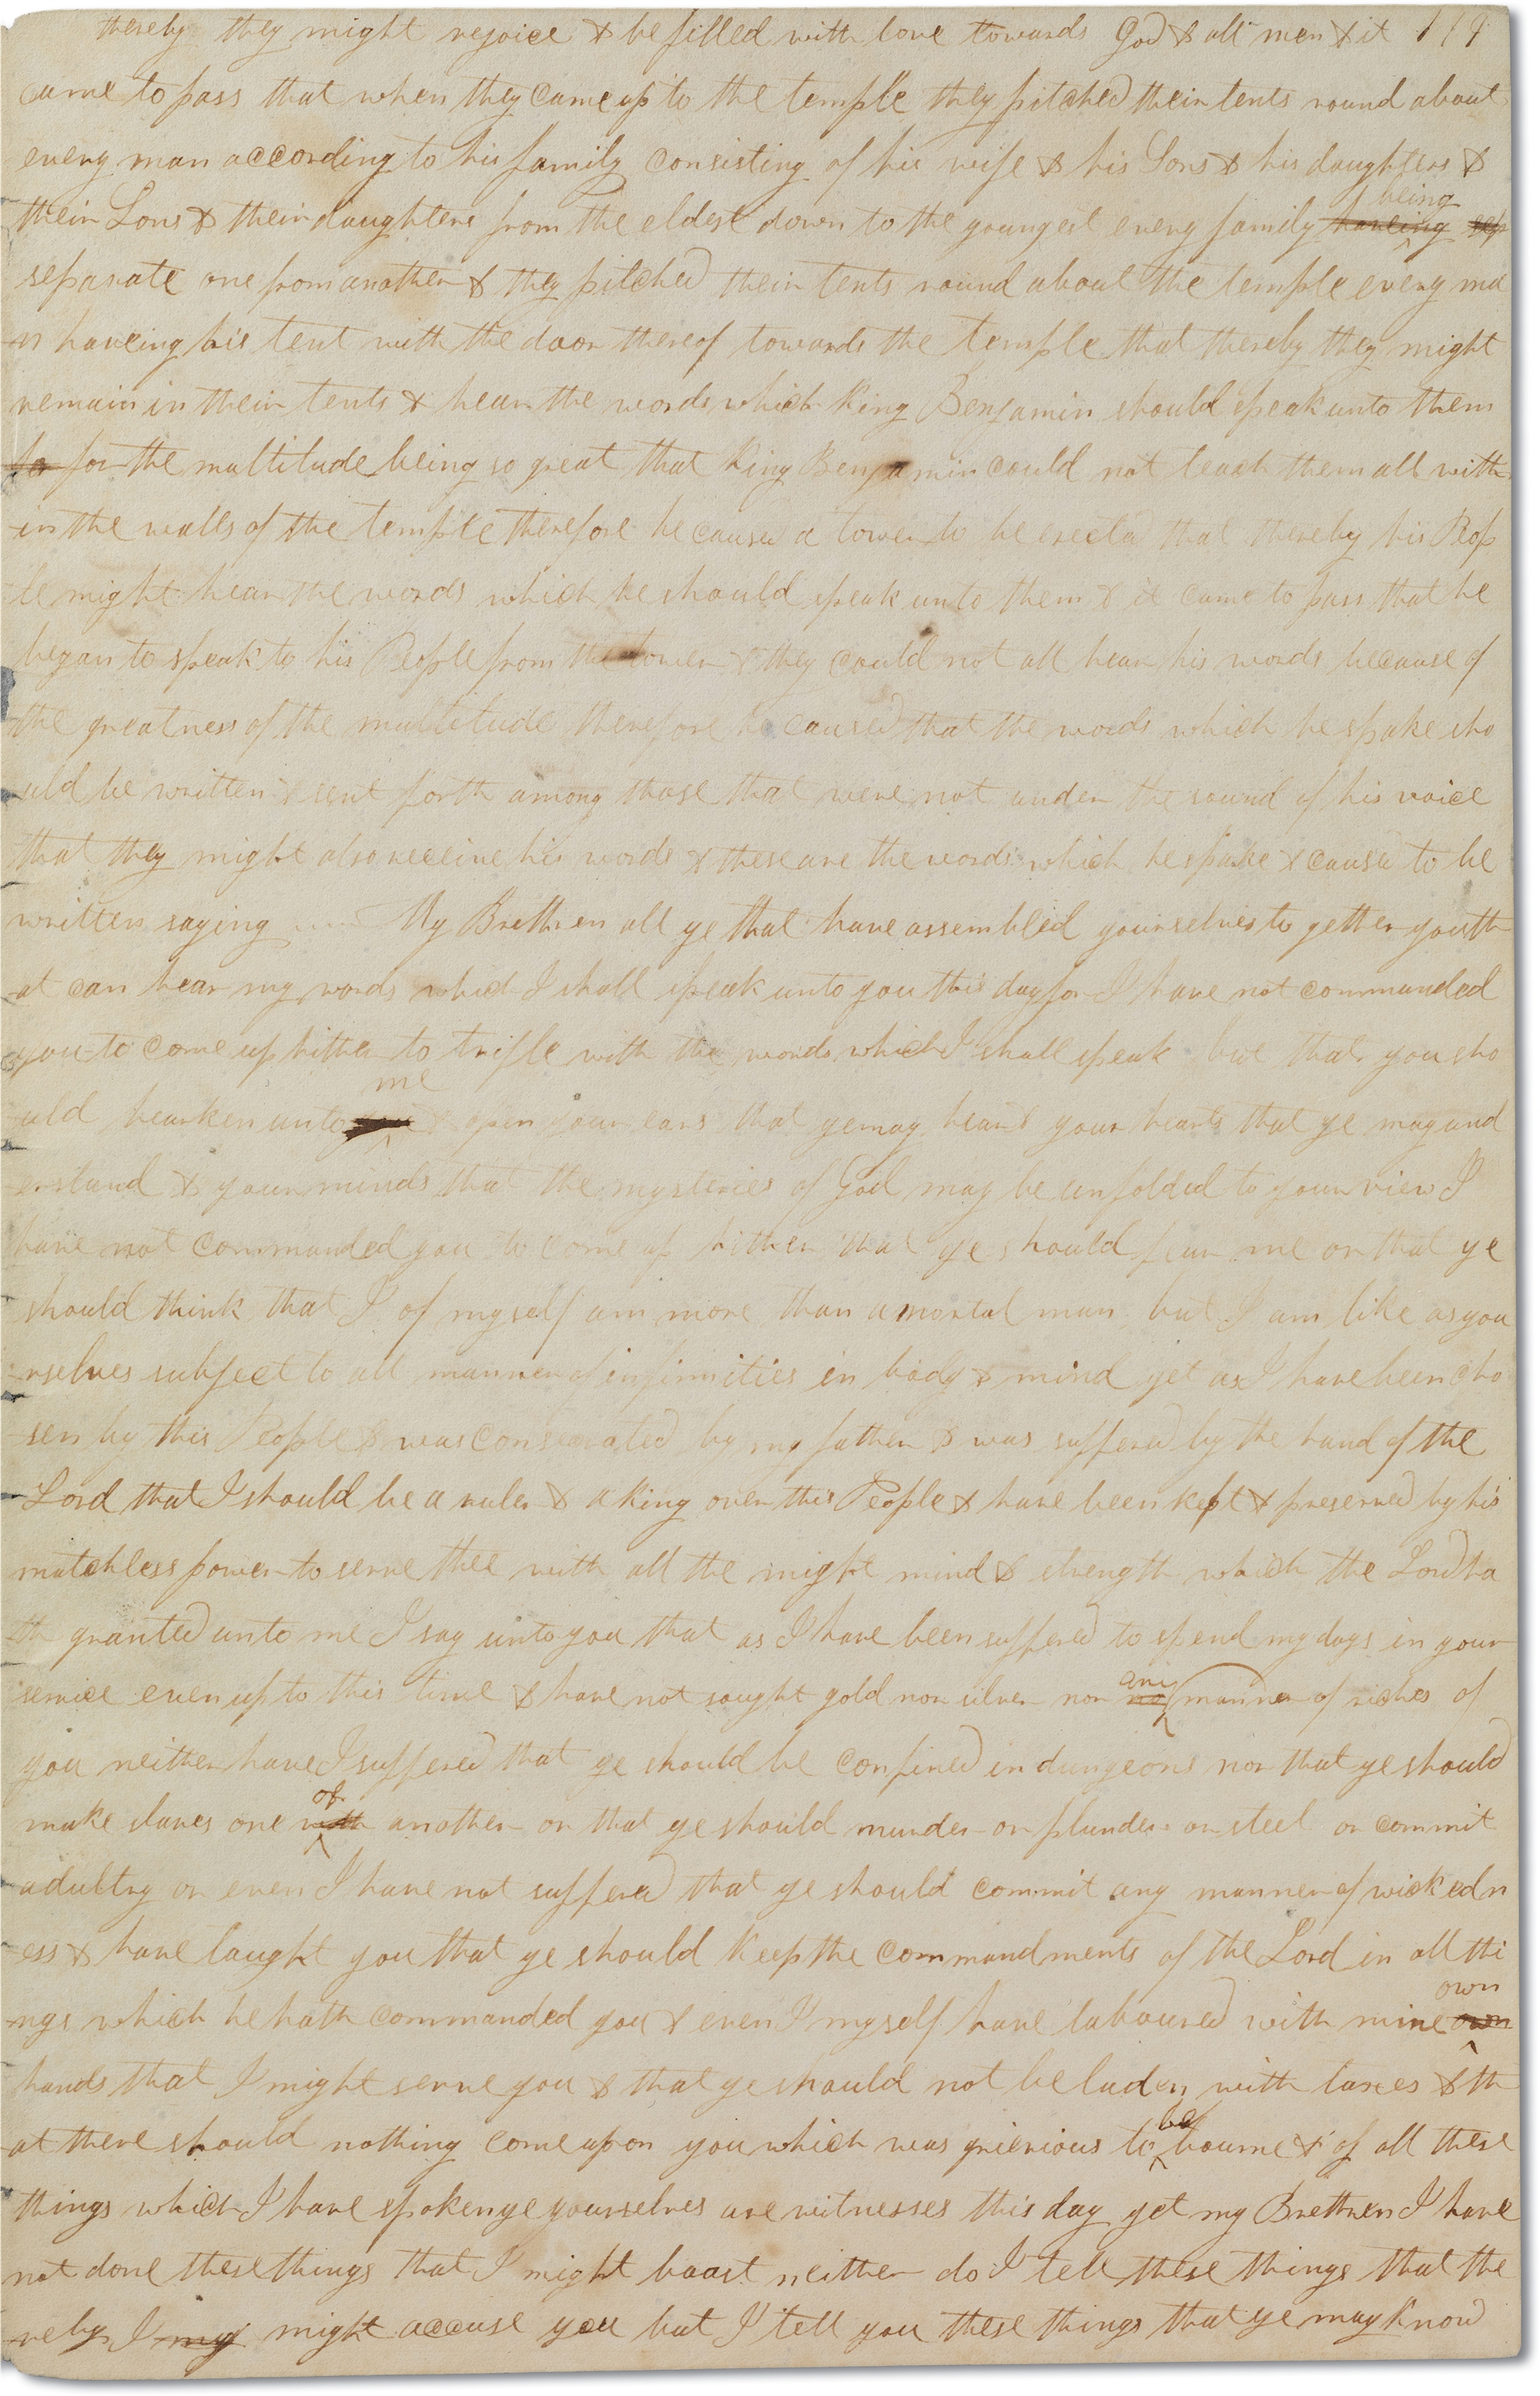 thereby they might rejoice & be filled with love towards God & all men & it 119
came to pass that when they came up to the temple they pitched their tents round about
every man according to his family consisting of his wife & his Sons & his daughters &
their Sons & their daughters from the eldest down to the youngest every family haveing being sep
separate one from another & they pitched their tents round about the temple every ma
n haveing his tent with the door thereof towards the temple that thereby they might
remain in their tents & hear the words which King Benjamin should speak unto them
fo for the multitude being so great that King Benjamin could not teach them all with
in the walls of the temple therefore he caused a tower to be erected that thereby his Peop
le might hear the words which he should speak unto them & it came to pass that he
began to speak to his People from the tower & they could not all hear his words because of
the greatness of the multitude therefore he caused that the words which he spake sho
uld be written & sent forth among those that were not under the sound of his voice
that they might also receive his words & these are the words which he spake & caused to be
written saying My Brethren all ye that have assembled yourselves to gether you th
at can hear my words which I shall speak unto you this day for I have not commanded
you to come up hither to trifle with the words which I shall speak but that you sho
uld hearken unto me & open your ears that ye may hear & your hearts that ye may und
erstand & your minds that the mysteries of God may be unfolded to your view I
have not commanded you to come up hither that ye should fear me or that ye
should think that I of myself am more than a mortal man but I am like as you
rselves subject to all manner of infirmities in body & mind yet as I have been cho
sen by this People & was consecrated by my father & was suffered by the hand of the
Lord that I should be a ruler & a king over this People & have been kept & preserved by his
matchless power to serve thee with all the might mind & strength which the Lord ha
th granted unto me I say unto you that as I have been suffered to spend my days in your
service even up to this time & have not sought gold nor silver nor no any manner of riches of
you neither have I suffered that ye should be confined in dungeons nor that ye should
make slaves one with of another or that ye should murder or plunder or steel or commit
adultry or even I have not suffered that ye should commit any manner of wickedn
ess & have taught you that ye should keep the commandments of the Lord in all thi
ngs which he hath commanded you & even I myself have laboured with mine own own
hands that I might serve you & that ye should not be laden with taxes & th
at there should nothing come upon you which was grievious to be bourne & of all these
things which I have spoken ye yourselves are witnesses this day yet my Brethren I have
not done these things that I might boast neither do I tell these things that the
reby I my might accuse you but I tell you these things that ye may know